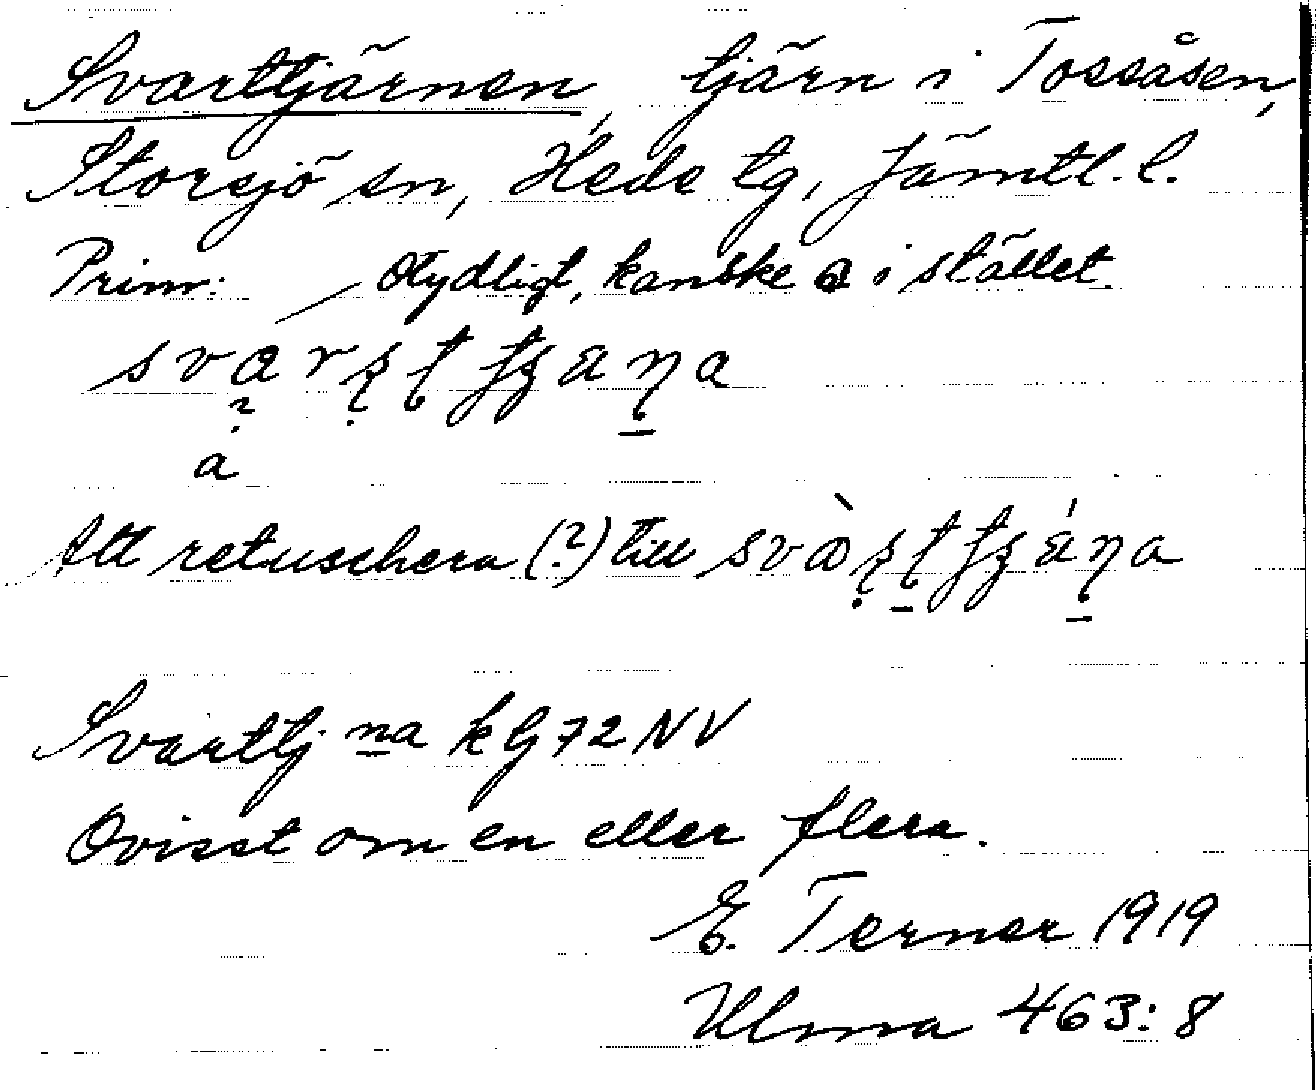 Svarttjärnen, tjärn i Tossåsen,
Storsjö sn, Hede tg, Jämtl. l.
Prim: Otydligt, kanske a i stället.
a
Att retuschera (?) till
Svarttj na kG72NV
Ovisst om en eller flera.
E. Terner 1919
Ulma 463:8